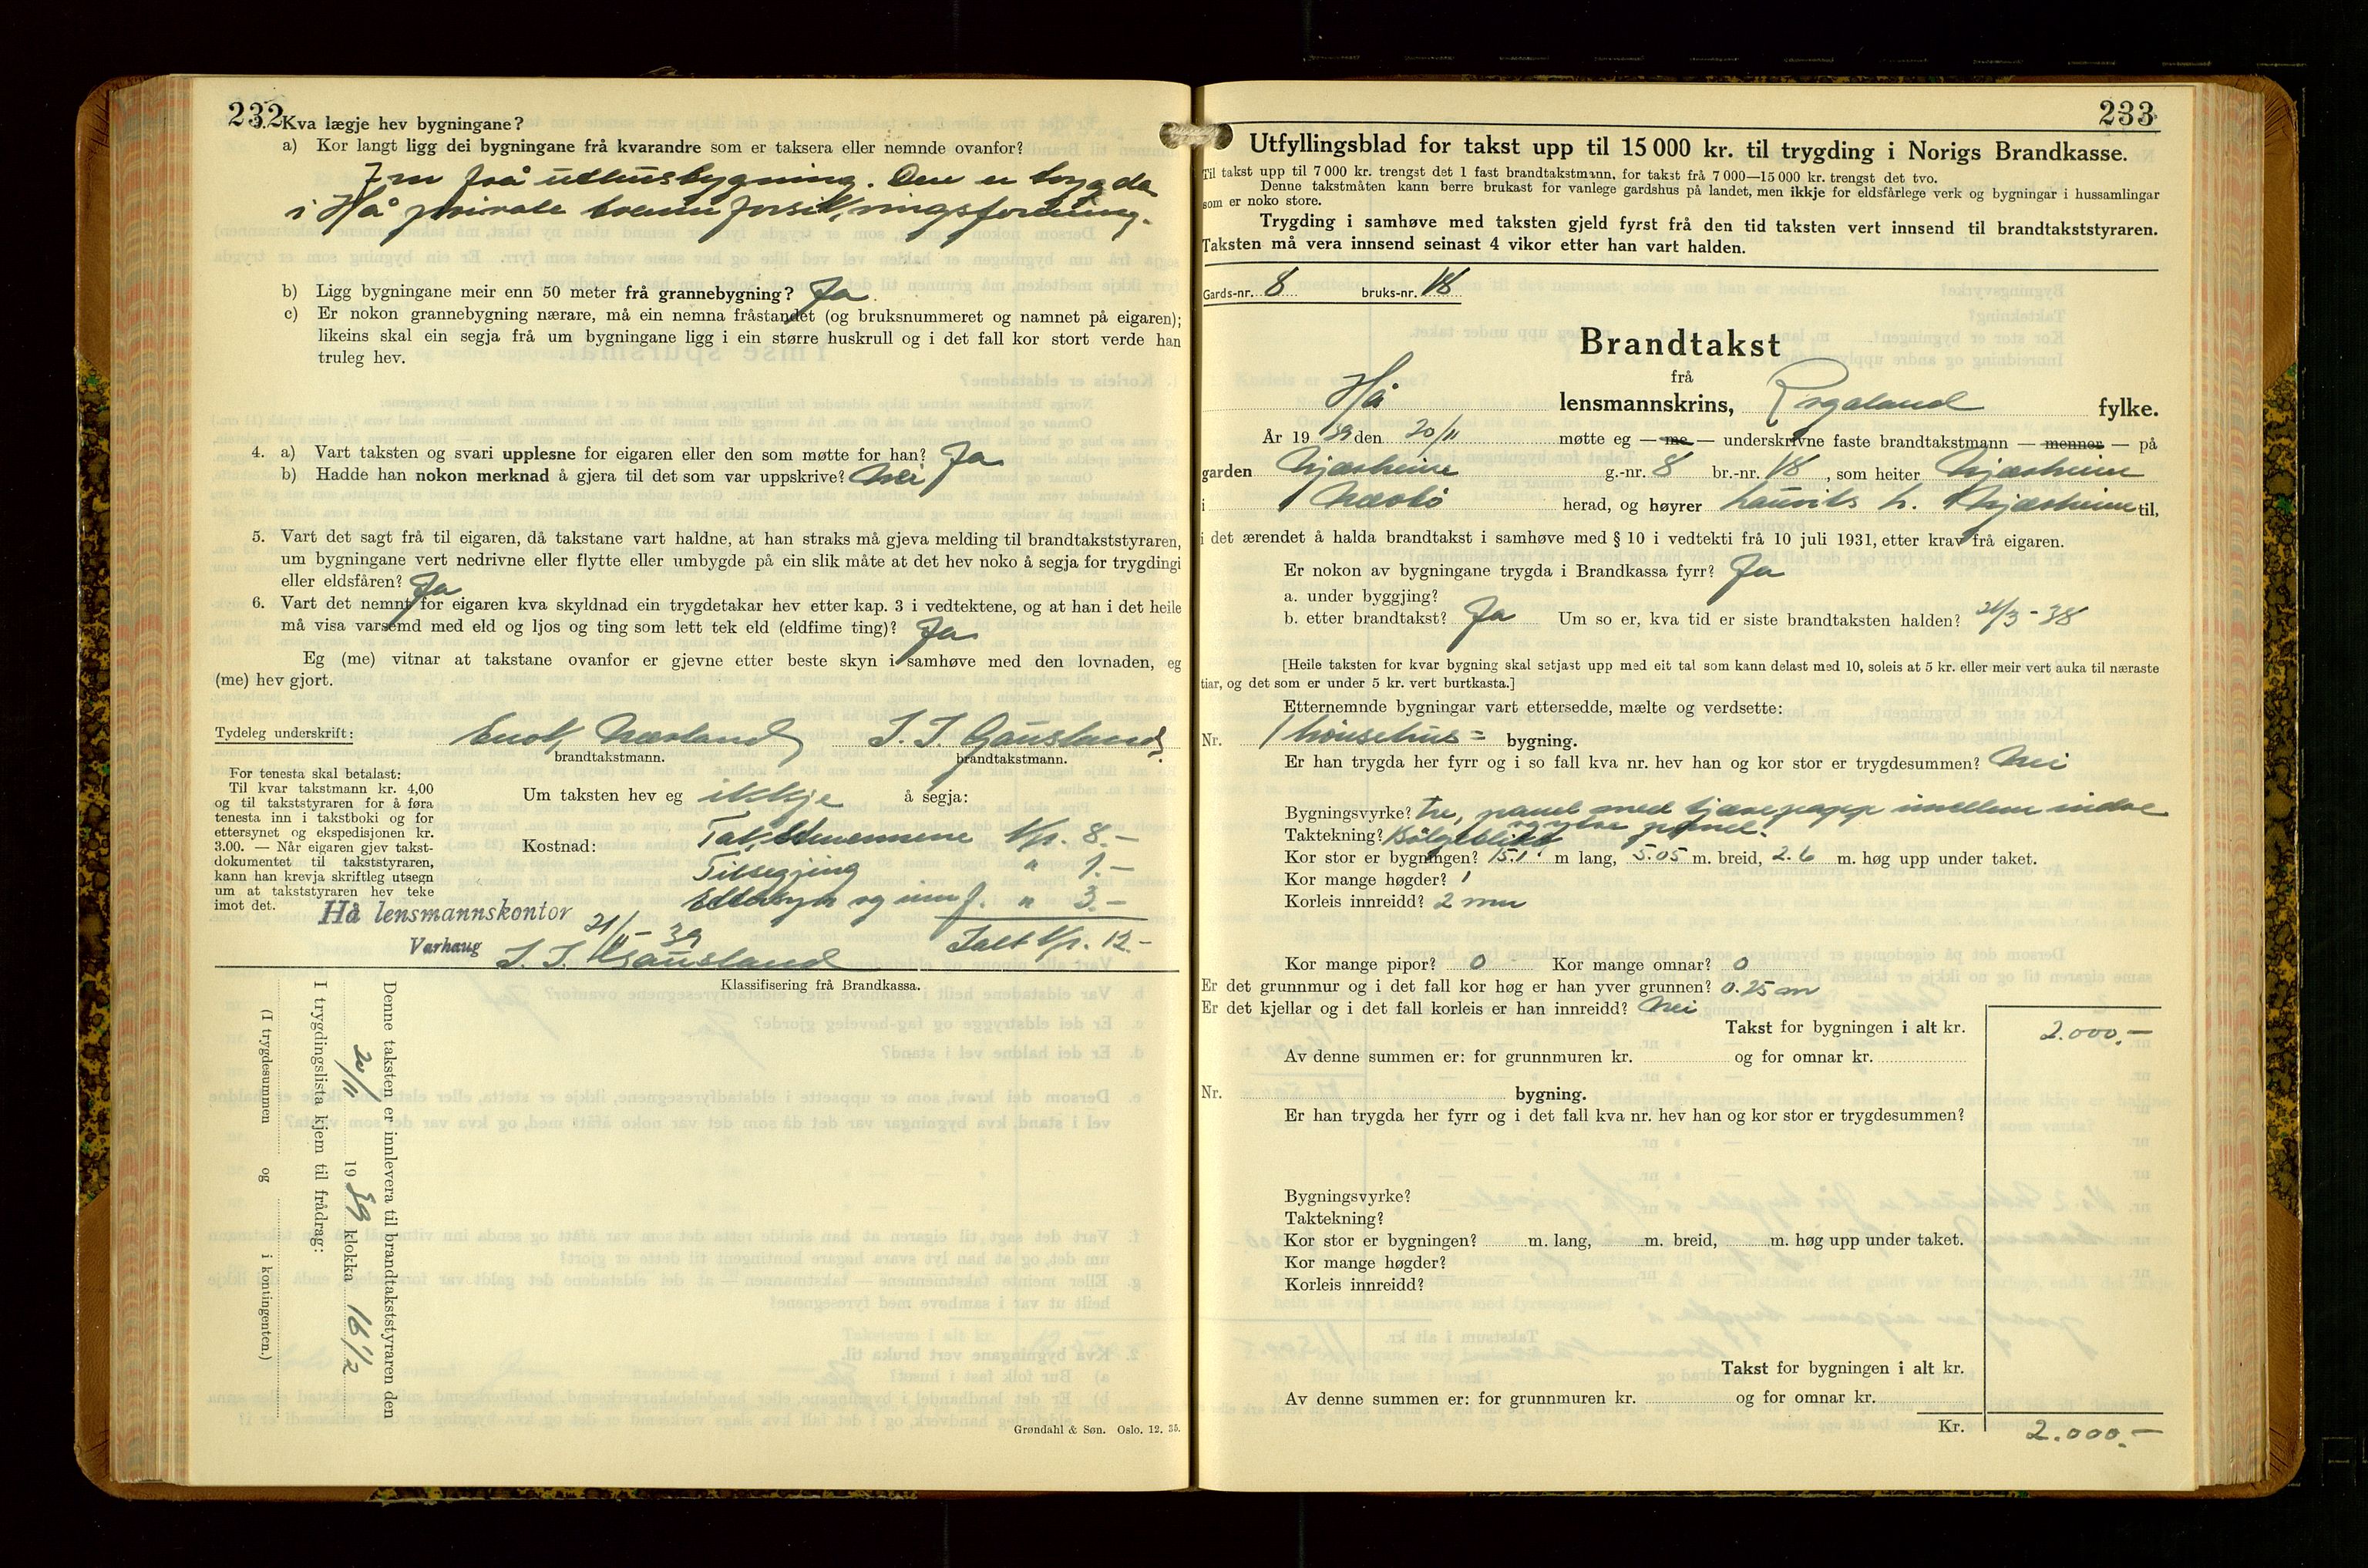 232
3. Kva lægje hev bygningane?
a) Kor langt ligg dei bygningane frå kvarandre som er taksera eller nemnde ovanfor?
7 m frå uthusbygning. Den er trygda
i Hå private brannforsikringsforening.
b) Ligg bygningane meir enn 50 meter frå grannebygning? Ja
c) Er nokon grannebygning nærare, må ein nemna fråstandet (og bruksnummeret og namnet på eigaren);
likeins skal ein segja frå um bygningane ligg i ein større huskrull og i det fall kor stort verde han
truleg hev.
4. a) Vart taksten og svari upplesne for eigaren eller den som møtte for han? Ja
b) Hadde han nokon merknad å gjera til det som var uppskrive? Nei
5. Vart det sagt frå til eigaren, då takstane vart haldne, at han straks må gjeva melding til brandtakststyraren,
um bygningane vert nedrivne eller flytte eller umbygde på ein slik måte at det hev noko å segja for trygdingi
eller eldsfåren? Ja
6. Vart det nemnt for eigaren kva skyldnad ein trygdetakar hev etter kap. 3 i vedtektene, og at han i det heile
må visa varsemd med eld og ljos og ting som lett tek eld (eldfime ting)? Ja
Eg (me) vitnar at takstane ovanfor er gjevne etter beste skyn i samhøve med den lovnaden, eg
(me) hev gjort.
Tydeleg underskrift: Enok Nærland J. J. Gausland
brandtakstmann. brandtakstmann.
For tenesta skal betalast:
Til kvar takstmann kr. 4,00
og til takststyraren for å føra
tenesta inn i takstboki og for
ettersynet og ekspedisjonen kr.
3.00. — Når eigaren gjev takst-
dokumentet til takststyraren,
kann han krevja skriftleg utsegn
um at takststyraren hev teke
imot det.
Um taksten hev eg ikkje å segja:
Kostnad: Takstmennene Kr. 8.-
Tilsegjing " 1.-
Ettersyn og innf. " 3.-
Ialt Kr. 12-
Hå lensmannskontor
Varhaug 21/11-39
J. J. Gausland
Klassifisering frå Brandkassa.
Denne taksten er innlevera til brandtakststyraren den
20/11 1939 klokka 16 1/2
I trygdingslista kjem til frådrag:
(I trygdesummen og i kontingenten.)
Grøndahl & Søn. Oslo. 12. 35.
233
Utfyllingsblad for takst upp til 15 000 kr. til trygding i Norigs Brandkasse.
Til takst upp til 7 000 kr. trengst det 1 fast brandtakstmann, for takst frå 7 000—15 000 kr. trengst det tvo.
Denne takstmåten kann berre brukast for vanlege gardshus på landet, men ikkje for eldsfårlege verk og bygningar i hussamlingar
som er noko store.
Trygding i samhøve med taksten gjeld fyrst frå den tid taksten vert innsend til brandtakststyraren.
Taksten må vera innsend seinast 4 vikor etter han vart halden.
Gards-nr. 8 bruks-nr. 18
Brandtakst
frå
Hå lensmannskrins, Rogaland fylke.
År 19 39 den 20/11 møtte eg — me — underskrivne faste brandtakstmann — menner — på
garden Njærheim g.-nr. 8 br.-nr. 18, som heiter Njærheim
i Nærbö herad, og høyrer Laurits L. Njærheim til,
i det ærendet å halda brandtakst i samhøve med § 10 i vedtekti frå 10 juli 1931, etter krav frå eigaren.
Er nokon av bygningane trygda i Brandkassa fyrr? Ja
a. under byggjing?
b. etter brandtakst? Ja Um so er, kva tid er siste brandtaksten halden? 21/3-38
[Heile taksten for kvar bygning skal setjast upp med eit tal som kann delast med 10, soleis at 5 kr. eller meir vert auka til næraste
tiar, og det som er under 5 kr. vert burtkasta.]
Etternemnde bygningar vart ettersedde, mælte og verdsette:
Nr. 1 hönsehus= bygning.
Er han trygda her fyrr og i so fall kva nr. hev han og kor stor er trygdesummen? Nei
Bygningsvyrke? Tre, panel med tjærepapp imellem indre
og ytre panel.
Taktekning? Bölgeblikk
Kor stor er bygningen? 15.1 m lang, 5.05 m. breid, 2.6 m. høg upp under taket.
Kor mange høgder? 1
Korleis innreidd? 2 rum
Kor mange pipor? 0 Kor mange omnar? 0
Er det grunnmur og i det fall kor høg er han yver grunnen? 0.25 m
Er det kjellar og i det fall korleis er han innreidd? Nei
Takst for bygningen i alt kr. 2.000.-
Av denne summen er: for grunnmuren kr. og for omnar kr.
Nr. bygning.
Er han trygda her fyrr og i det fall kva nr. hev han og kor stor er trygdesummen?
Bygningsvyrke?
Taktekning?
Kor stor er bygningen? m. lang, m. breid, m. høg upp under taket.
Kor mange høgder?
Korleis innreidd?
Takst for bygningen i alt kr.
Av denne summen er: for grunnmuren kr. og for omnar kr.
Kr. 2.000.-